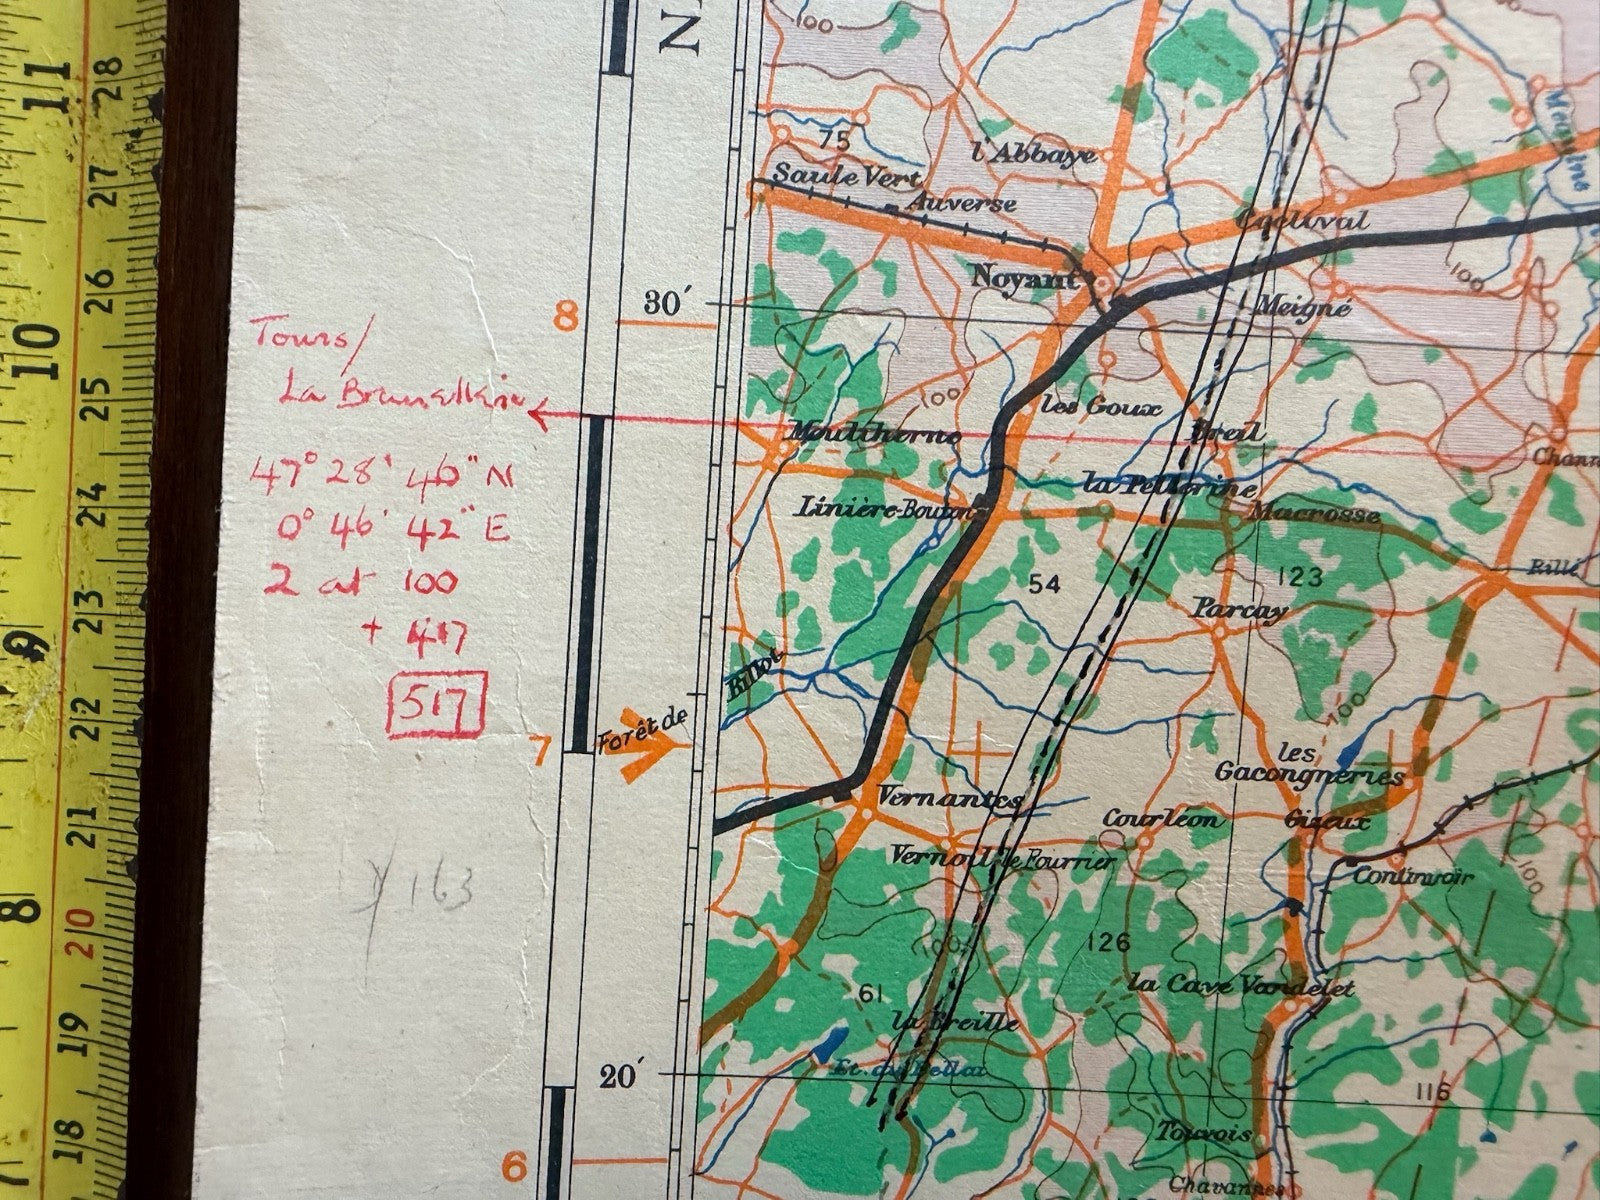 100
75
l'Abbaye
Saule Vert
Auverse
Méaulne
Noyant
Meigné
100
30'
8
Tours/
les Goux
100
Mouliherne
Breil
la Pellerine
Linière-Bouton
Macrosse
47° 28' 46" N
0° 46' 42" E
2 at 100
+ 417
517
54
123
Rillé
Parçay
100
7
Forêt de
les
Gacongneries
Vernantes
Courléon
Gizeux
Vernoil
le Fourrier
Continvoir
100
163
100
126
61
la Cave Vandelet
la Breille
20'
116
6
Touvois
Chavannes
11
10
9
8
28
27
26
25
24
23
22
21
20
19
18